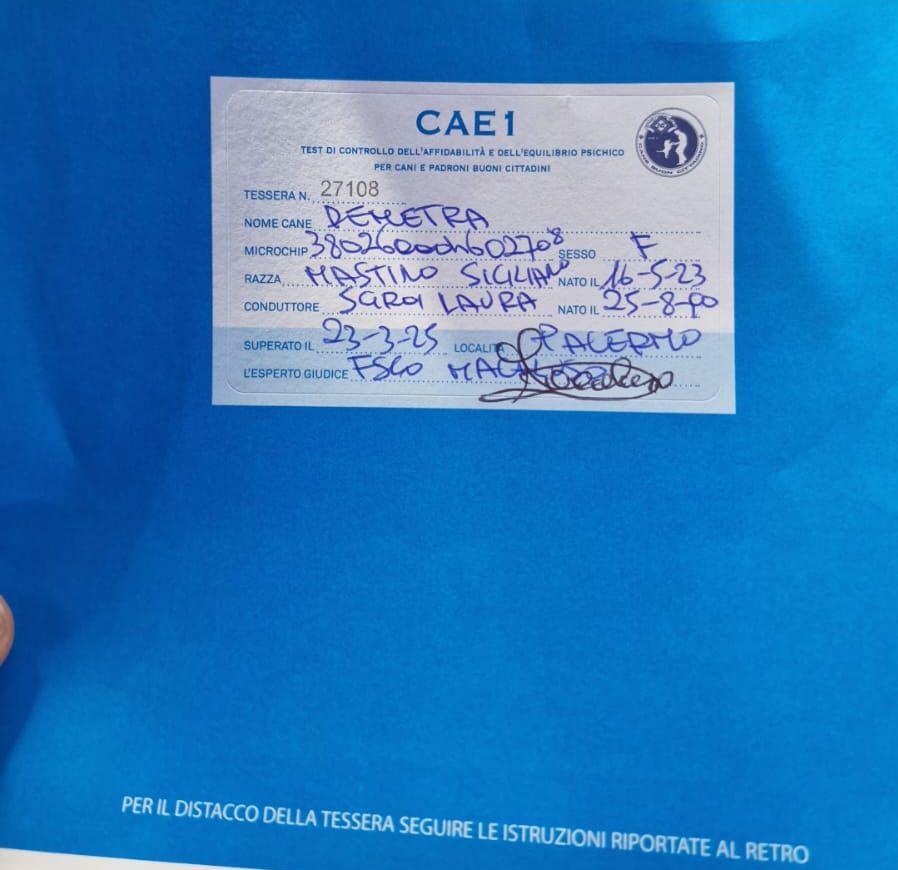 CAE1
TEST DI CONTROLLO DELL'AFFIDABILITÀ E DELL'EQUILIBRIO PSICHICO
PER CANI E PADRONI BUONI CITTADINI
TESSERA N. 27108
NOME CANE DEMETRA
MICROCHIP SESSO F
RAZZA MASTINO SICILIANO NATO IL 16-5-23
CONDUTTORE LAURA NATO IL 25-8-90
SUPERATO IL 23-3-25 LOCALITÀ PALERMO
L'ESPERTO GIUDICE
CANE BUON CITTADINO
PER IL DISTACCO DELLA TESSERA SEGUIRE LE ISTRUZIONI RIPORTATE AL RETRO